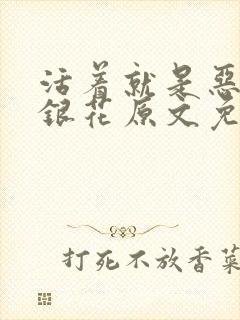 活着就是恶
銀花原文免
打死不放香菜